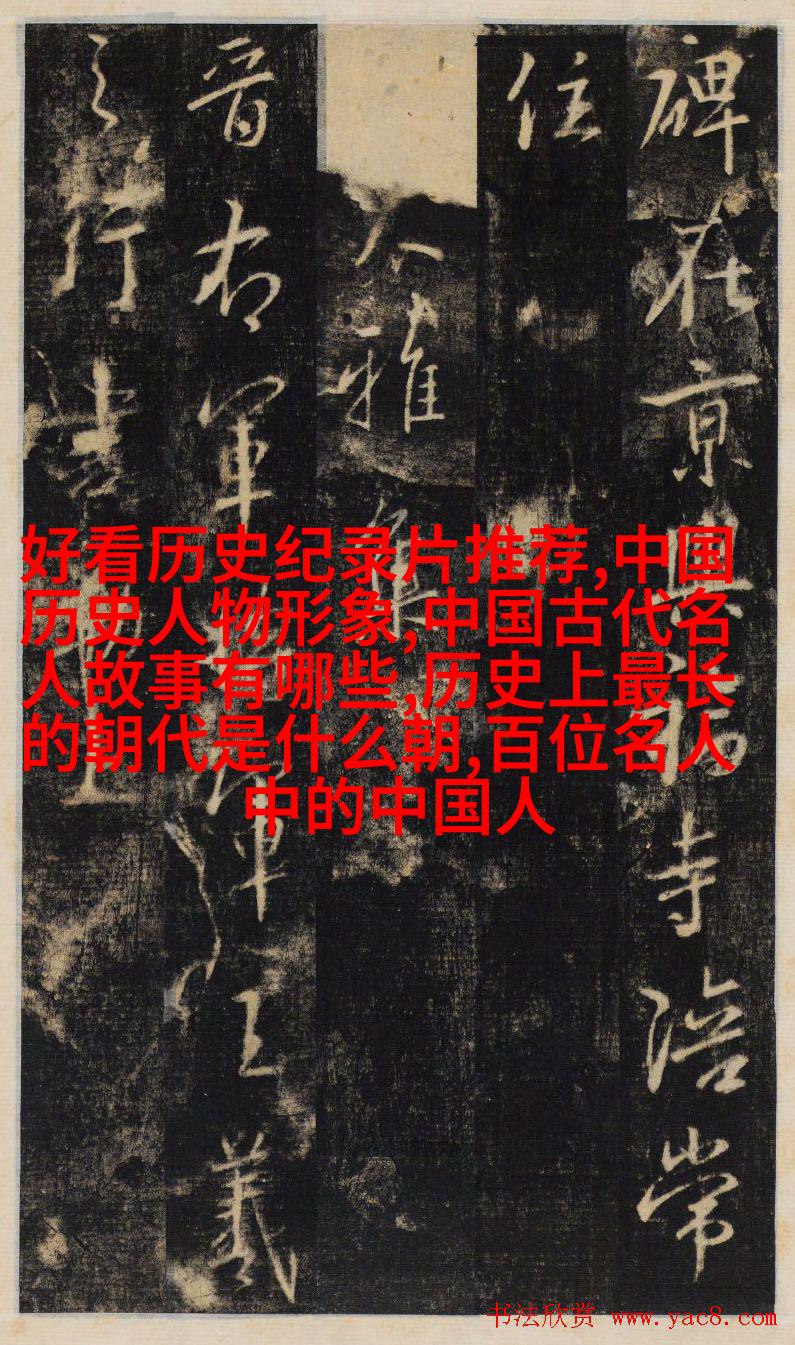 碑在京興福寺陪常
住
大雅集
晋右軍将軍王羲
之行書
好看历史纪录片推荐,中国
历史人物形象,中国古代名
人故事有哪些,历史上最长
的朝代是什么朝,百位名人
中的中国人
书法欣赏 www.yac8.com